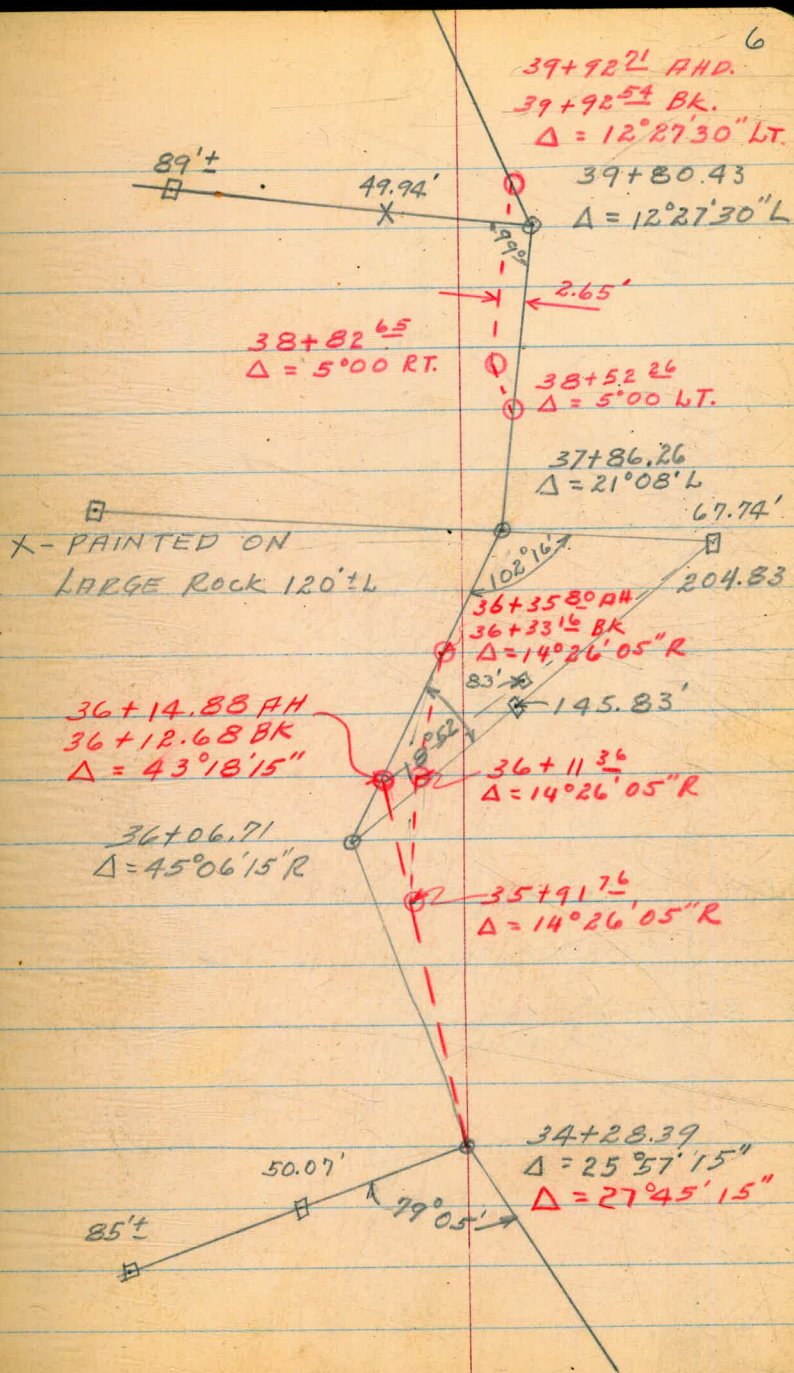 6
39+92 71 AHD.
39+92 54 BK.
Δ = 12°27'30" LT.
89'±
49.94'
39+80.43
Δ = 12°27'30" L
2.65'
38+82 65
Δ = 5°00 RT.
38+52 26
Δ = 5°00 LT.
37+86.26
Δ = 21°08' L
67.74'
X - PAINTED ON
LARGE ROCK 120'± L
102°16'
204.83
36+35 80 AH
36+33 16 BK
Δ = 14°26'05" R
83'
145.83'
18°52'
36+14.88 AH
36+12.68 BK
Δ = 43°18'15"
36+11 36
Δ = 14°26'05" R
36+06.71
Δ = 45°06'15" R
35+91 76
Δ = 14°26'05" R
34+28.39
Δ = 25°57'15"
Δ = 27°45'15"
50.07'
79°05'
85'±